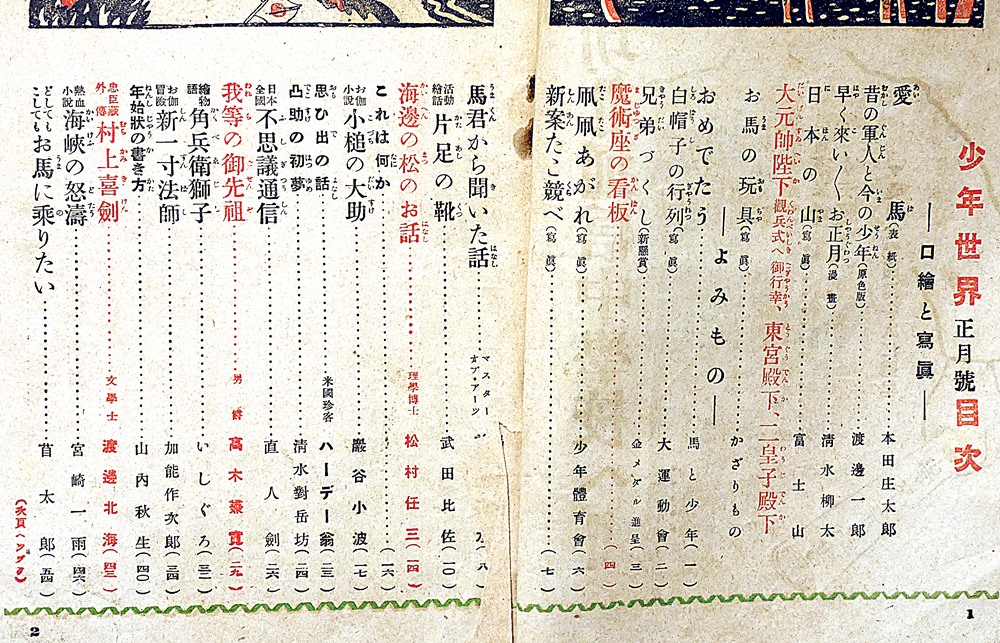 少年世界 正月號 目次
――口繪と寫眞――
愛馬(表紙)‥‥‥本田庄太郎
昔の軍人と今の少年(原色版)‥‥‥渡邊一郎
早く來い〱お正月(漫畫)‥‥‥淸水柳太
日本の山(寫眞)‥‥‥富士山
大元帥陛下觀兵式へ御行幸、東宮殿下、二皇子殿下
お馬の玩具(寫眞)‥‥‥かざりもの
おめでたう――よみもの――
白帽子の行列(寫眞)‥‥‥馬と少年(一)
兄弟づくし(新懸賞)‥‥‥大運動會(二)
魔術座の看板‥‥‥金メダル進呈(三)
凧凧あがれ(寫眞)‥‥‥(四)
新案たこ競べ(寫眞)‥‥‥少年體育會(六)
‥‥‥(七)
馬君から聞いた話‥‥‥マスターオブアーツ(八)
活動繪話 片足の靴‥‥‥武田比佐(一〇)
海邊の松のお話‥‥‥理學博士 松村任三(一四)
これは何か‥‥‥(一六)
お伽小說 小槌の大助‥‥‥巖谷小波(一七)
思ひ出の話‥‥‥米國珍客 ハーデー翁(二三)
凸助の初夢‥‥‥淸水對岳坊(二四)
日本全國 不思議通信‥‥‥直人劍(二六)
我等の御先祖‥‥‥男爵 高木兼寬(二九)
繪物語 角兵衛獅子‥‥‥いしぐろ(三二)
お伽冒險 新一寸法師‥‥‥加能作次郎(三四)
年始狀の書き方‥‥‥山內秋生(四〇)
忠臣藏外傳 村上喜劍‥‥‥文學士 渡邊北海(四三)
熱血小說 海峽の怒濤‥‥‥宮崎一雨(四六)
どしてもこしてもお馬に乘りたい‥‥‥首太郎(五四)
(次頁ヘツヅク)
1
2